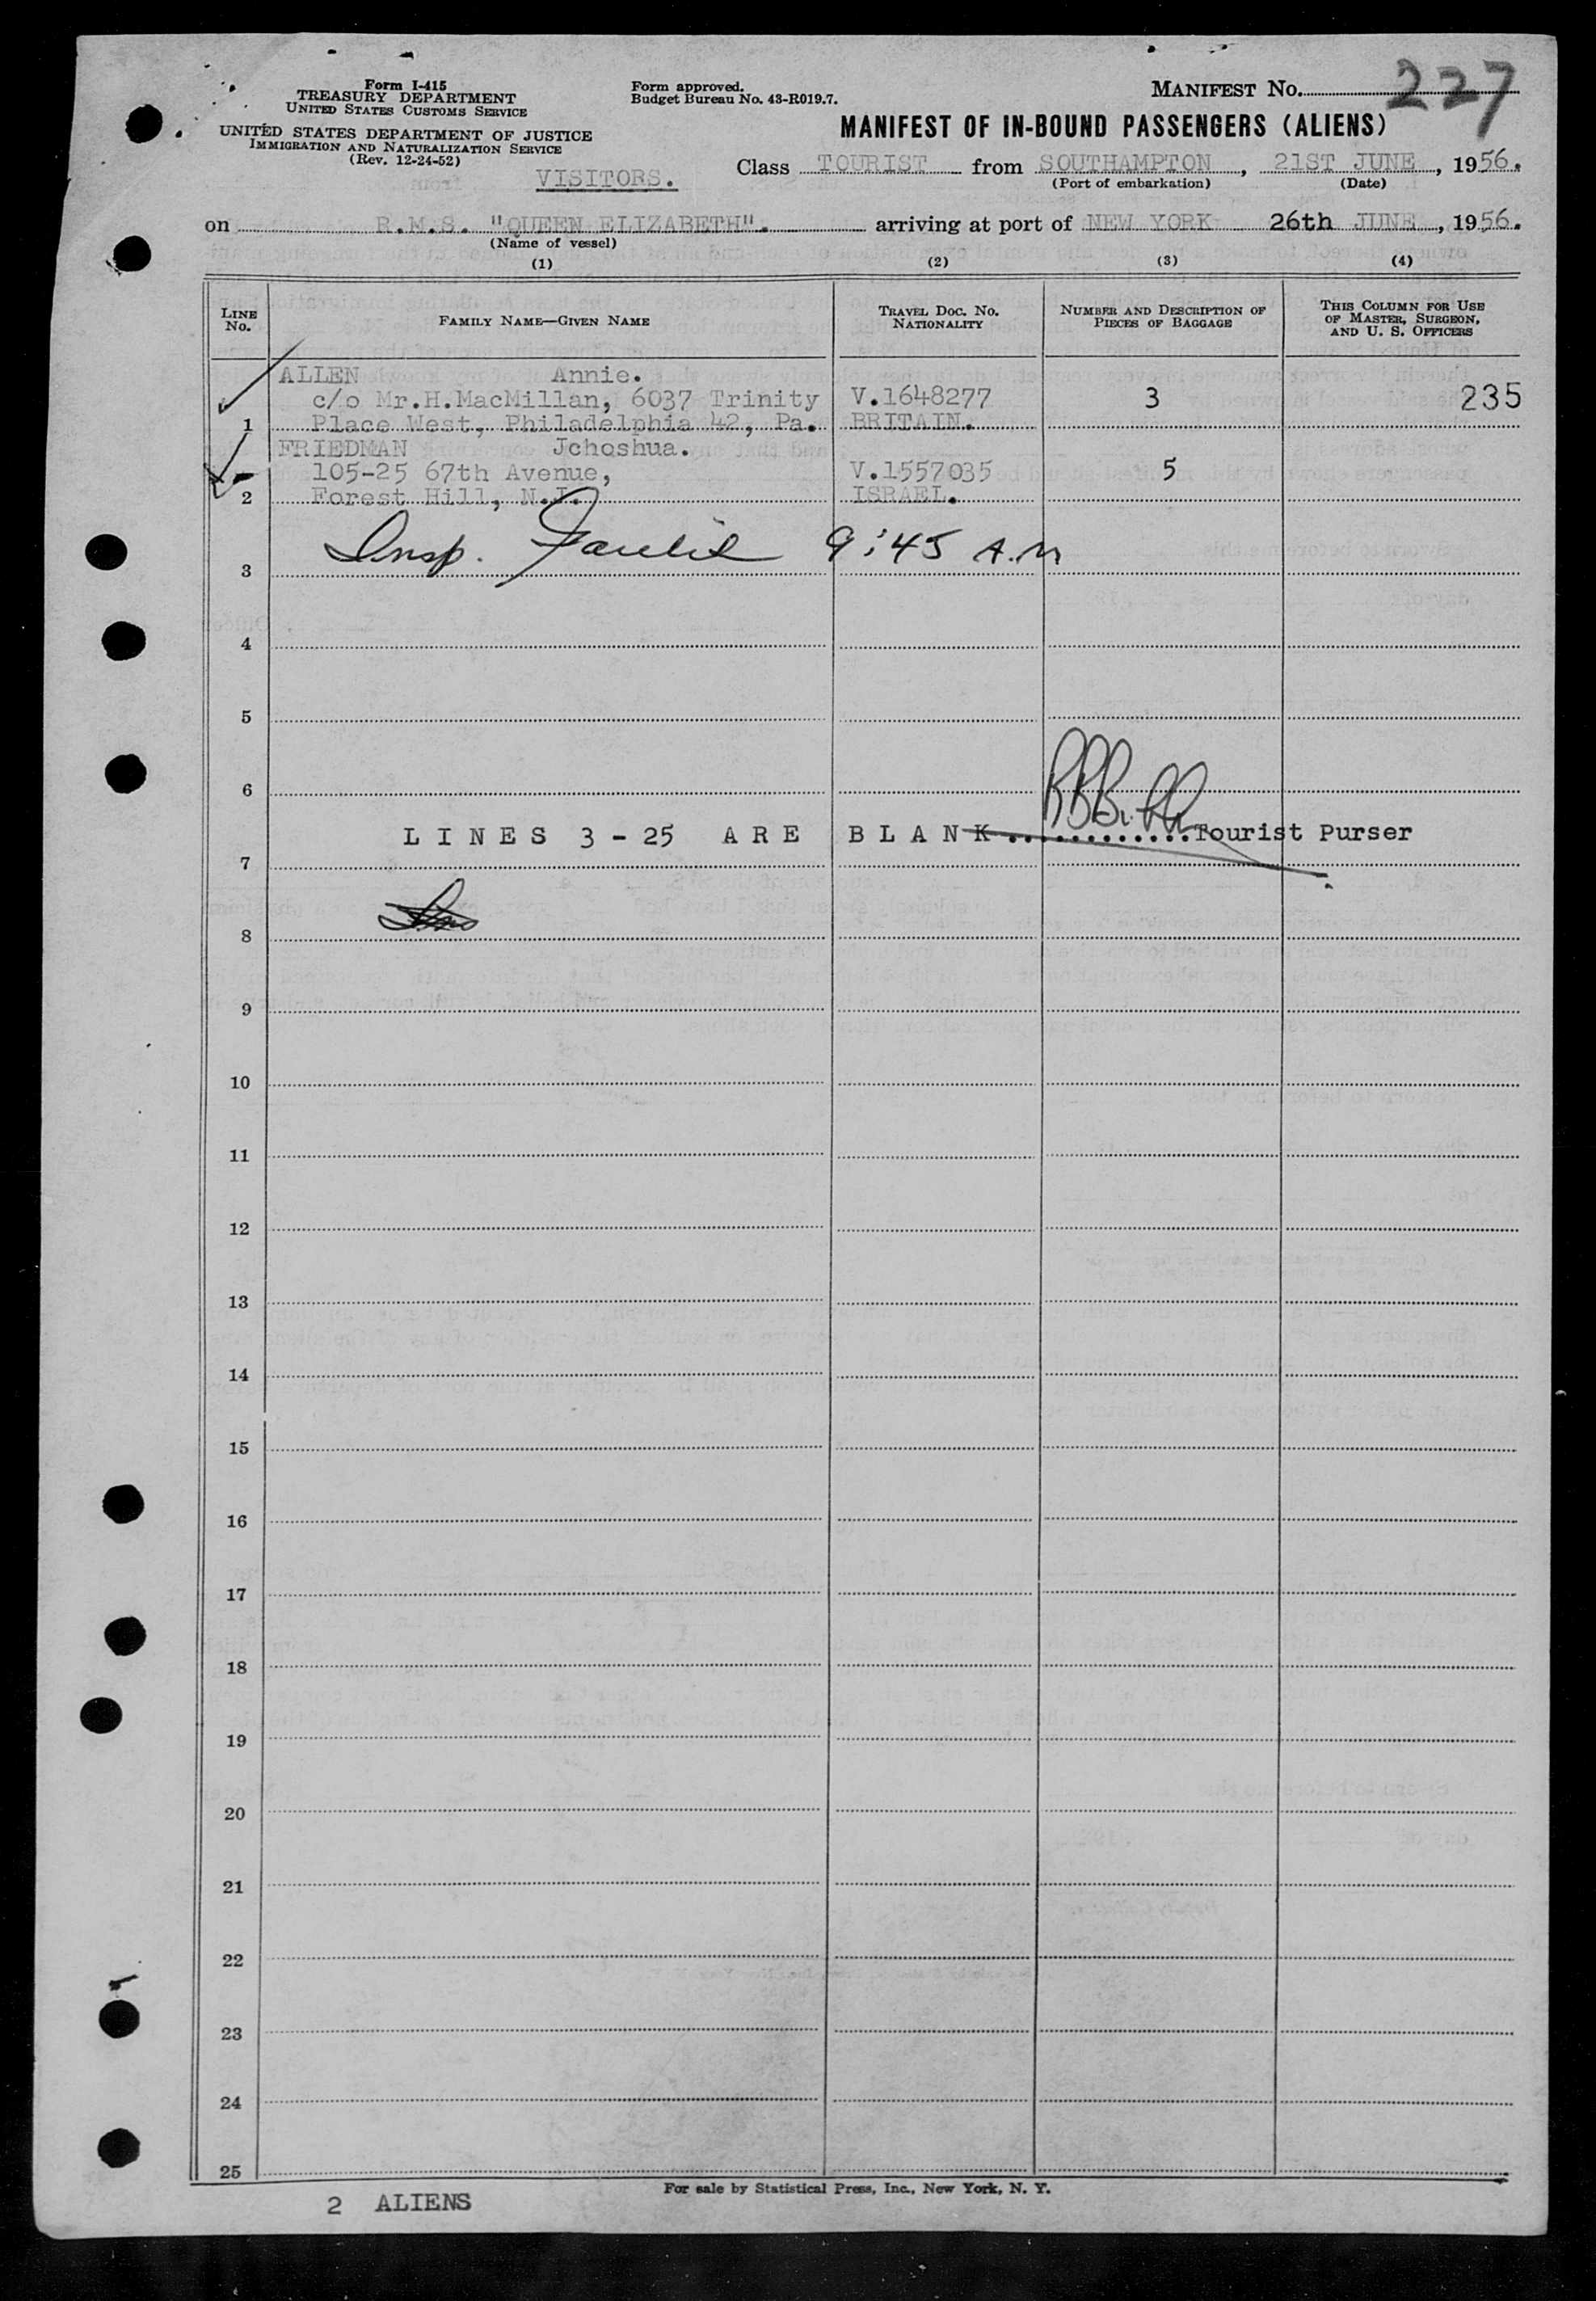 Form I-415
TREASURY DEPARTMENT
UNITED STATES CUSTOMS SERVICE
UNITED STATES DEPARTMENT OF JUSTICE
IMMIGRATION AND NATURALIZATION SERVICE
(Rev. 12-24-52)
Form approved.
Budget Bureau No. 43-R019.7.
MANIFEST No. 227
MANIFEST OF IN-BOUND PASSENGERS (ALIENS)
VISITORS.
Class TOURIST from SOUTHAMPTON, 21ST JUNE, 1956.
(Port of embarkation) (Date)
on R.M.S. "QUEEN ELIZABETH". arriving at port of NEW YORK 26th JUNE, 1956.
(Name of vessel)
(1) (2) (3) (4)
LINE No. FAMILY NAME—GIVEN NAME TRAVEL DOC. No. NATIONALITY NUMBER AND DESCRIPTION OF PIECES OF BAGGAGE THIS COLUMN FOR USE OF MASTER, SURGEON, AND U. S. OFFICERS
ALLEN Annie.
c/o Mr.H.MacMillan, 6037 Trinity V.1648277 3 235
1 Place West, Philadelphia 42, Pa. BRITAIN.
FRIEDMAN Jchoshua.
105-25 67th Avenue, V.1557035 5
2 Forest Hill, N.J. ISRAEL.
3 Insp. 9:45 A.M
4
5
6
LINES 3-25 ARE BLANK............Tourist Purser
7
8
9
10
11
12
13
14
15
16
17
18
19
20
21
22
23
24
25
For sale by Statistical Press, Inc., New York, N. Y.
2 ALIENS